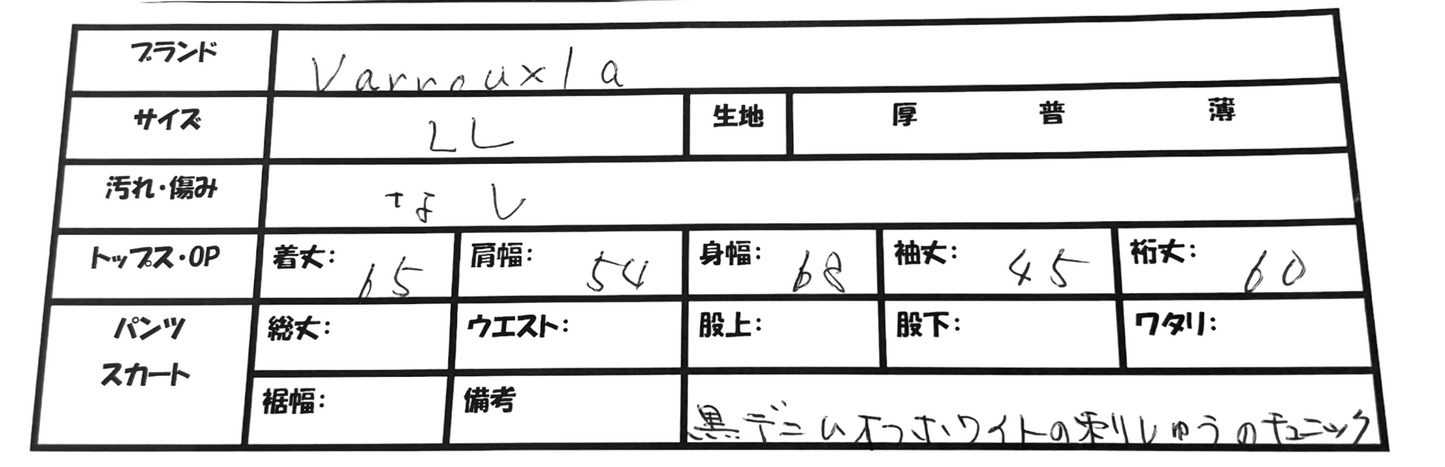 ブランド Varrouxla
サイズ LL 生地 厚 普 薄
汚れ・傷み なし
トップス・OP 着丈: 65 肩幅: 54 身幅: 68 袖丈: 45 裄丈: 60
パンツ 総丈: ウエスト: 股上: 股下: ワタリ:
スカート
裾幅: 備考 黒デニムオフホワイトの刺しゅうのチュニック